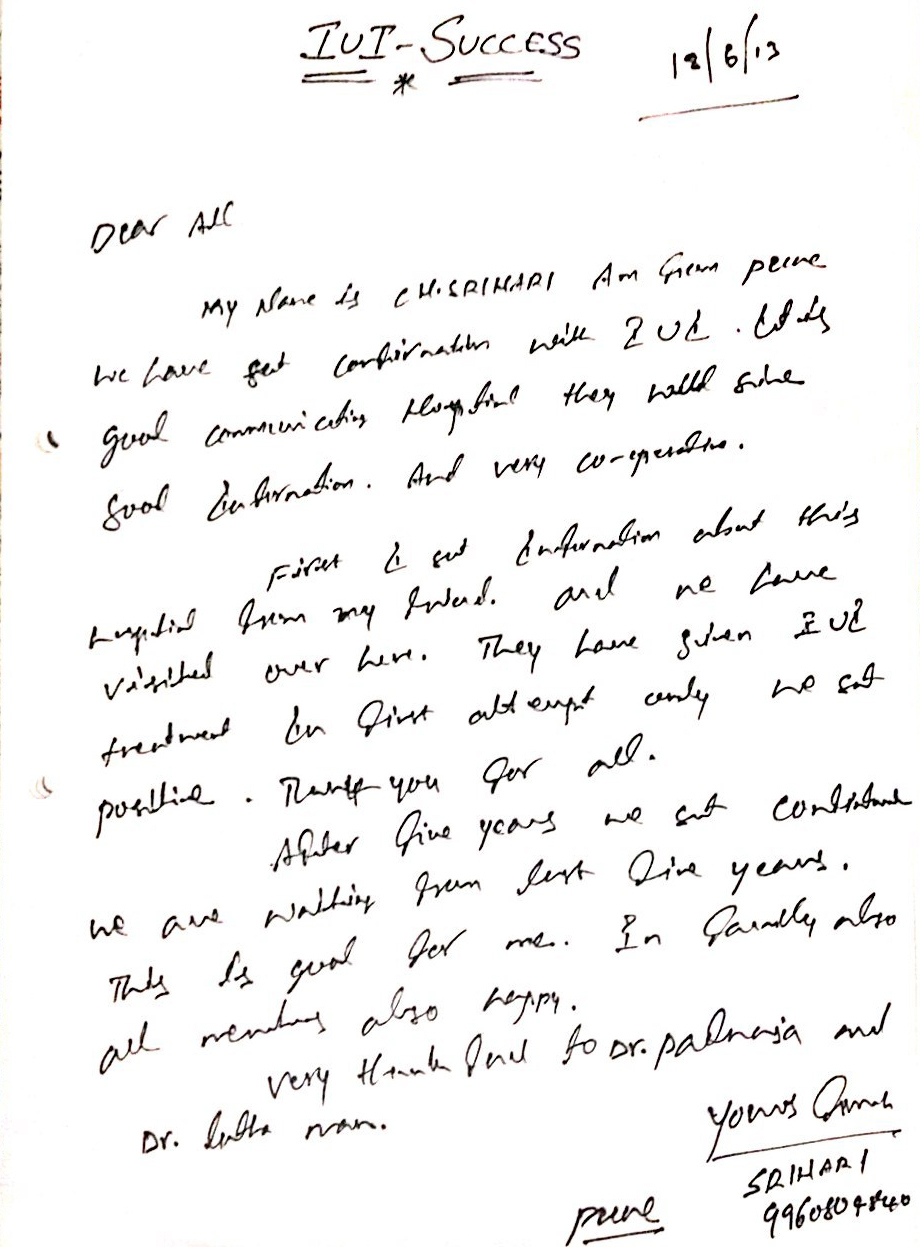 IUI - SUCCESS
*
18/6/13
Dear All
My Name is CH.SRIHARI Am from pune
we have got confirmation with IUI. It is
good communicating Hospital they will give
good information. And very co-operative.
First I got information about this
hospital from my friend. and we have
visited over here. They have given IUI
treatment in first attempt only we got
positive. Thank you for all.
After five years we got
we are waiting from last five years.
This is good for me. In family also
all members also happy.
very thank full to Dr. padmaja and
Dr. mam.
Yours
SRIHARI
pune